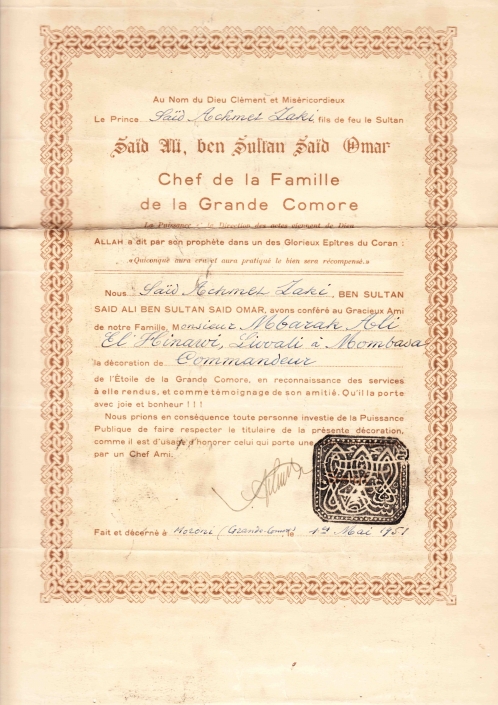 Au Nom du Dieu Clément et Miséricordieux
Le Prince Saïd Achmet Zaki, fils de feu le Sultan
Saïd Ali, ben Sultan Saïd Omar
Chef de la Famille
de la Grande Comore
La Puissance et la Direction des actes viennent de Dieu
ALLAH a dit par son prophète dans un des Glorieux Epîtres du Coran :
«Quiconque aura cru et aura pratiqué le bien sera récompensé.»
Nous Saïd Achmet Zaki, BEN SULTAN
SAID ALI BEN SULTAN SAID OMAR, avons conféré au Gracieux Ami
de notre Famille, Monsieur Mbarak Ali
El Hinawi, Liwali à Mombasa
la décoration de Commandeur
de l'Étoile de la Grande Comore, en reconnaissance des services
à elle rendus, et comme témoignage de son amitié. Qu'il la porte
avec joie et bonheur !!!
Nous prions en conséquence toute personne investie de la Puissance
Publique de faire respecter le titulaire de la présente décoration,
comme il est d'usage d'honorer celui qui porte une
par un Chef Ami.
Fait et décerné à Moroni (Grande Comore) le 1er Mai 1951